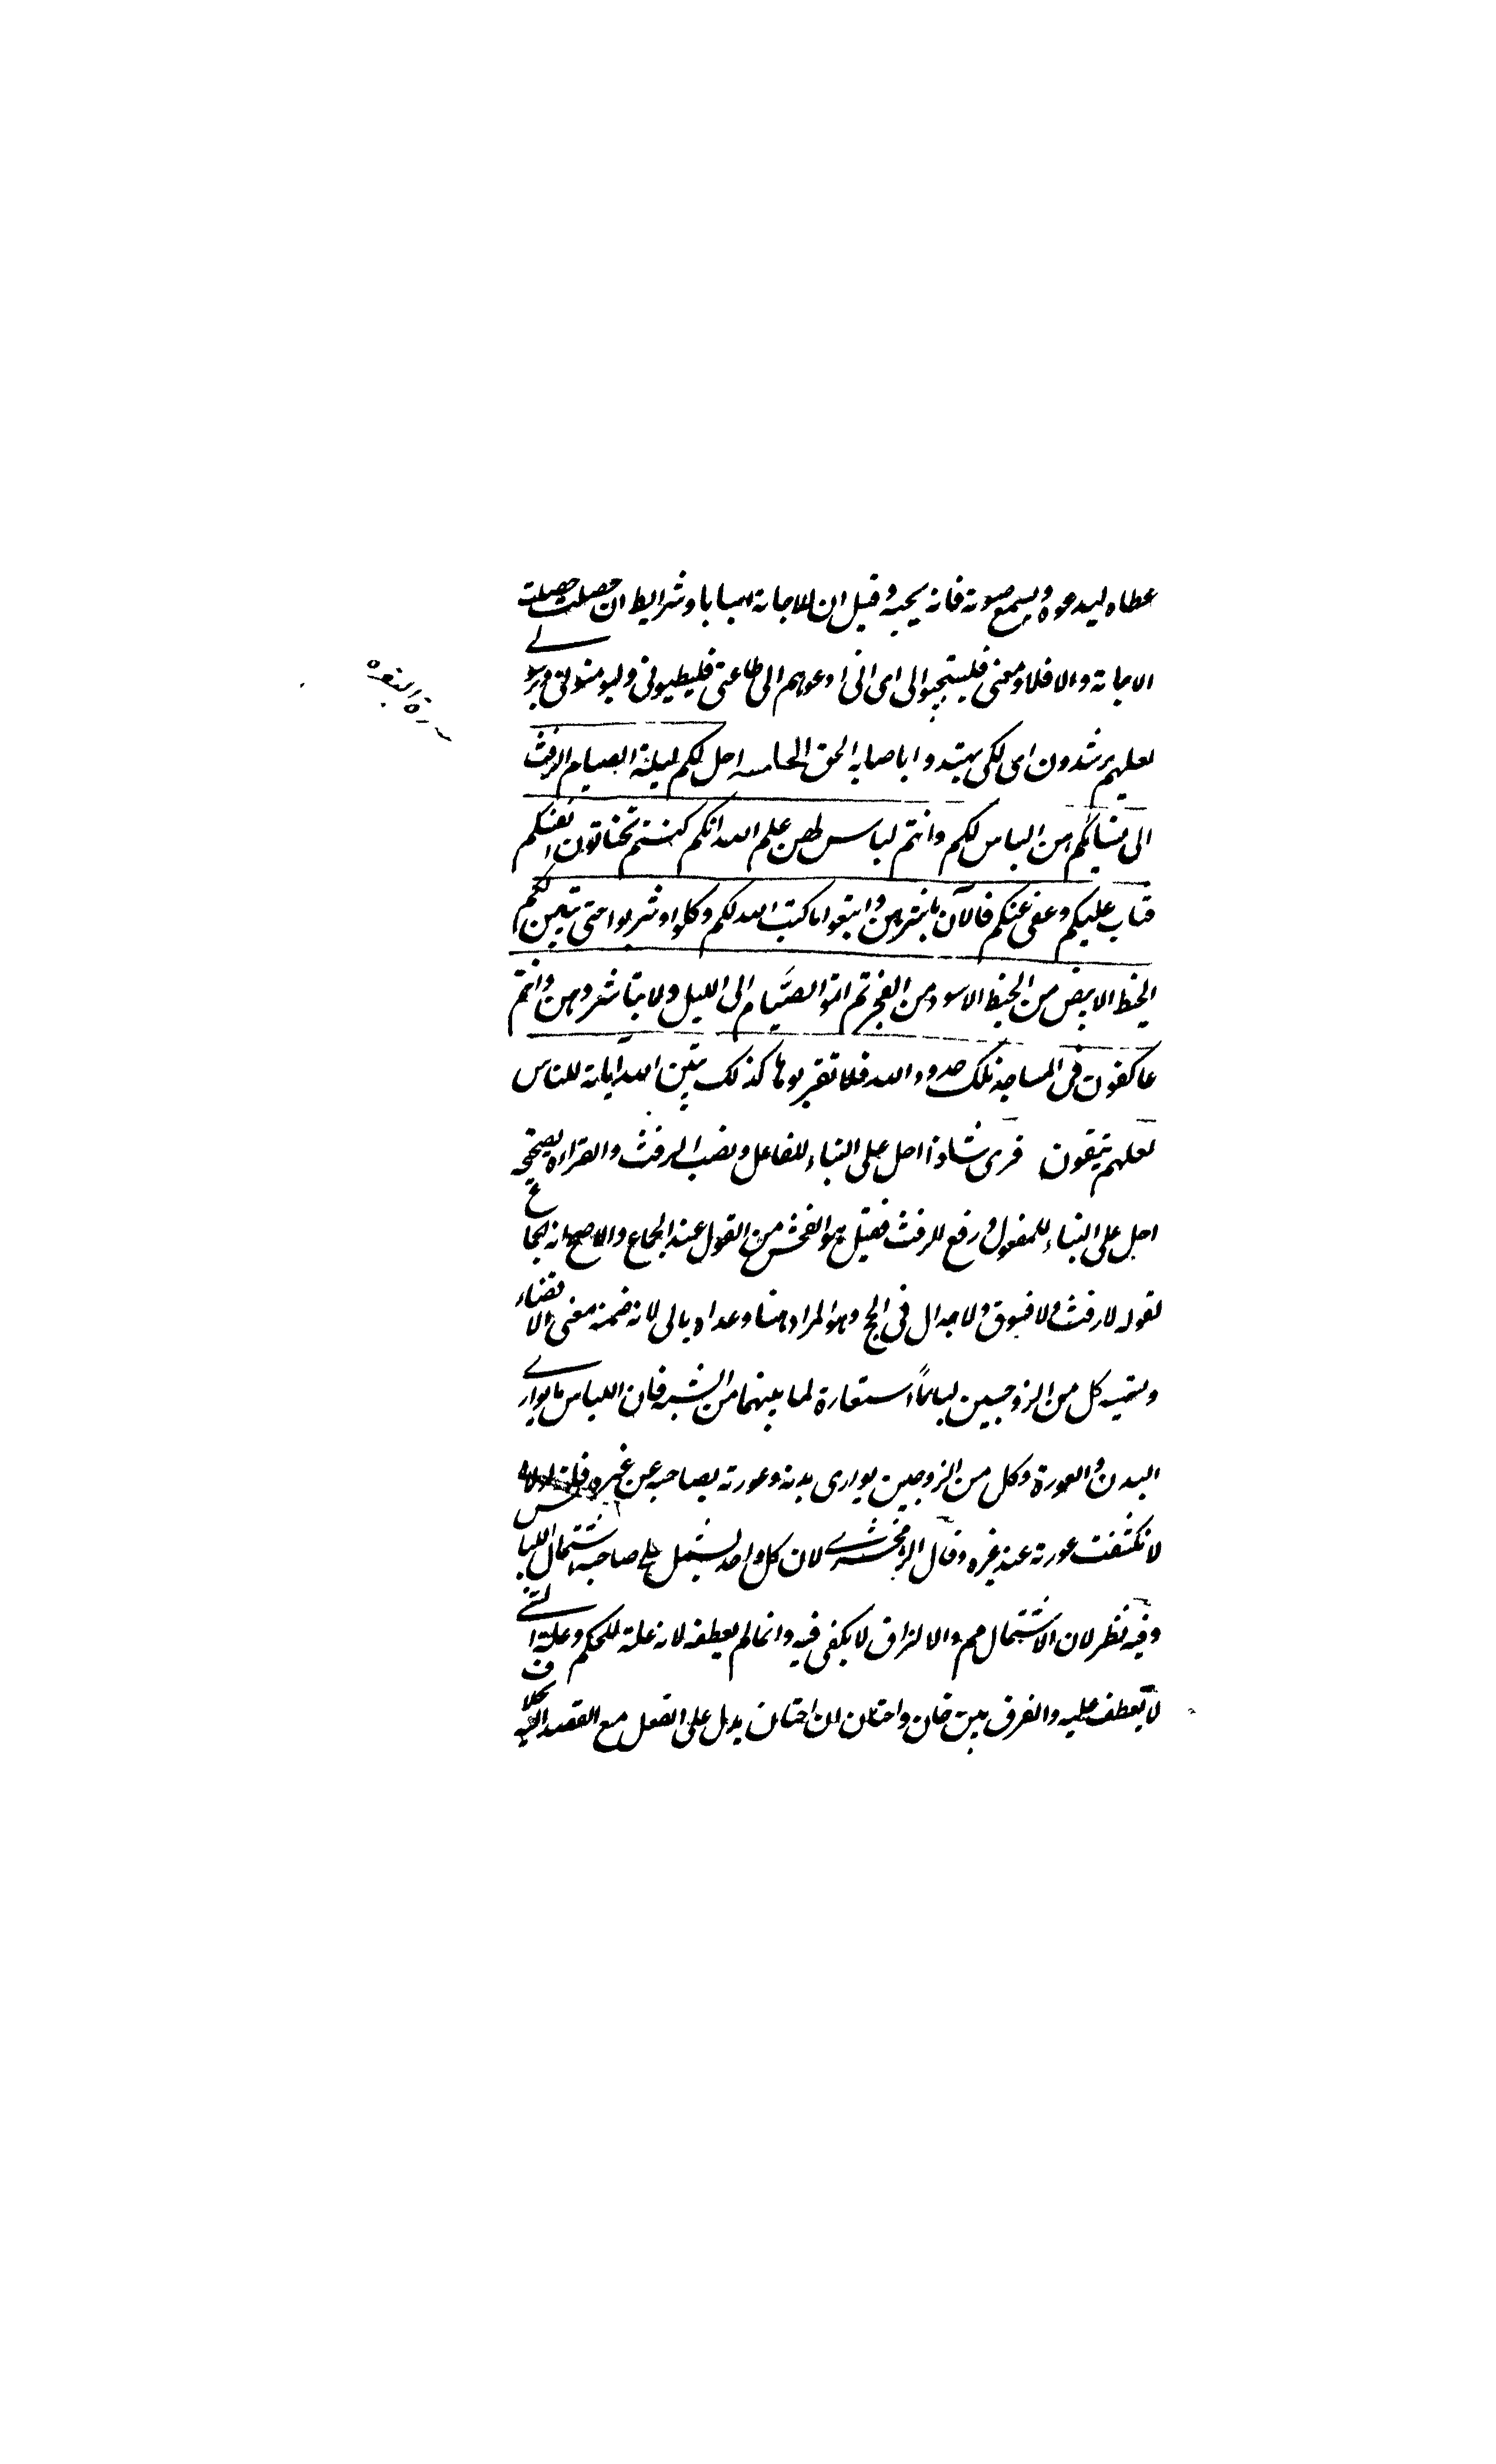 عطاه ليدعوه ويسمع صوته فانه يحبه وقيل ان للاجابة اسبابا وشرايط ان حصلت حصلت
الاجابة والا فلا ومعنى فليستجيبوا لي اى انى ادعوهم الى طاعتى فليطيعونى وليومنوا بى وبرسولے
لعلهم يرشدون اى لكى يهتدوا باصابة الحق الخامسه احل لكم ليلة الصيام الرفث
الى نسائكم هن لباس لكم وانتم لباس لهن علم الله انكم كنتم تختانون انفسكم
فتاب عليكم وعفى عنكم فالآن باشروهن وابتغوا ما كتب الله لكم وكلوا واشربوا حتى يتبين لكم
الخيط الابيض من الخيط الاسود من الفجر ثم اتموا الصيام الى الليل ولا تباشروهن وانتم
عاكفون فى المساجد تلك حدود الله فلا تقربوها كذلك يبين الله اياته للناس
لعلهم يتقون قرى شاذا احل على البناء للفاعل ونصب الرفث والقراءة الصحيحة
احل على البناء للمفعول ورفع الرفث فقيل هو الفحش من القول عند الجماع والاصح انه الجماع
لقوله لا رفث ولا فسوق ولا جدال فى الحج وهو المراد هنا وعداه بالى لانه ضمنه معنى الافضاء
وتسميه كل من الزوجيين لباسًا استعارة لما بينهما من الشبه فان اللباس ما يوارے
البدن والعورة وكل من الزوجين يوارى بدنه وعورته بصاحبه عن غيره
لانكشفت عورته عند غيره وقال الزمخشرے لان كل واحد يشتمل على صاحبه اشتمال اللباس
وفيه نظر لان الاشتمال مم والالتزاق لا يكفى فيه وانما لم يعطفه لانه علة للحكم وعلة الشئے
لا يعطف عليه والفرق بين خان واختان ان اختان يدل على الفعل مع القصد اليه بخلاف
سورة البقره